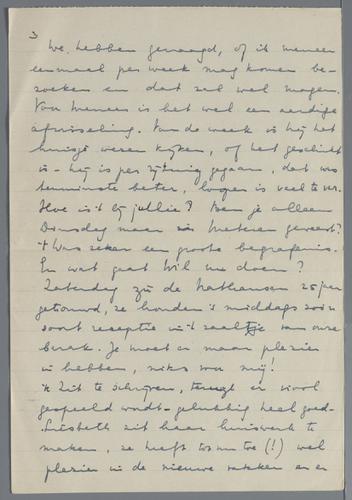 3
We hebben gevraagd, of ik meneer
eenmaal per week mag komen be-
zoeken en dat zal wel mogen.
Voor meneer is het wel een aardige
afwisseling. Van de week is hij het
huisje wezen kijken, of het geschikt
is - hij is per rijtuig gegaan, dat was
tenminste beter, loopen is veel te ver.
Hoe is 't bij jullie? Ben je alleen
Dinsdag maar in geweest?
't Was zeker een groote begrafenis.
En wat gaat Wil nu doen?
Zaterdag zijn de Nathansen 25 jaar
getrouwd, ze houden 's middags zoo'n
soort receptie in 't zaaltje van onze
barak. Je moet er maar plezier
in hebben, niks voor mij!
'k Zit te schrijven, terwijl er viool
gespeeld wordt - gelukkig heel goed.
Liesbeth zit haar huiswerk te
maken, ze heeft (!) wel
plezier in de nieuwe vakken en er